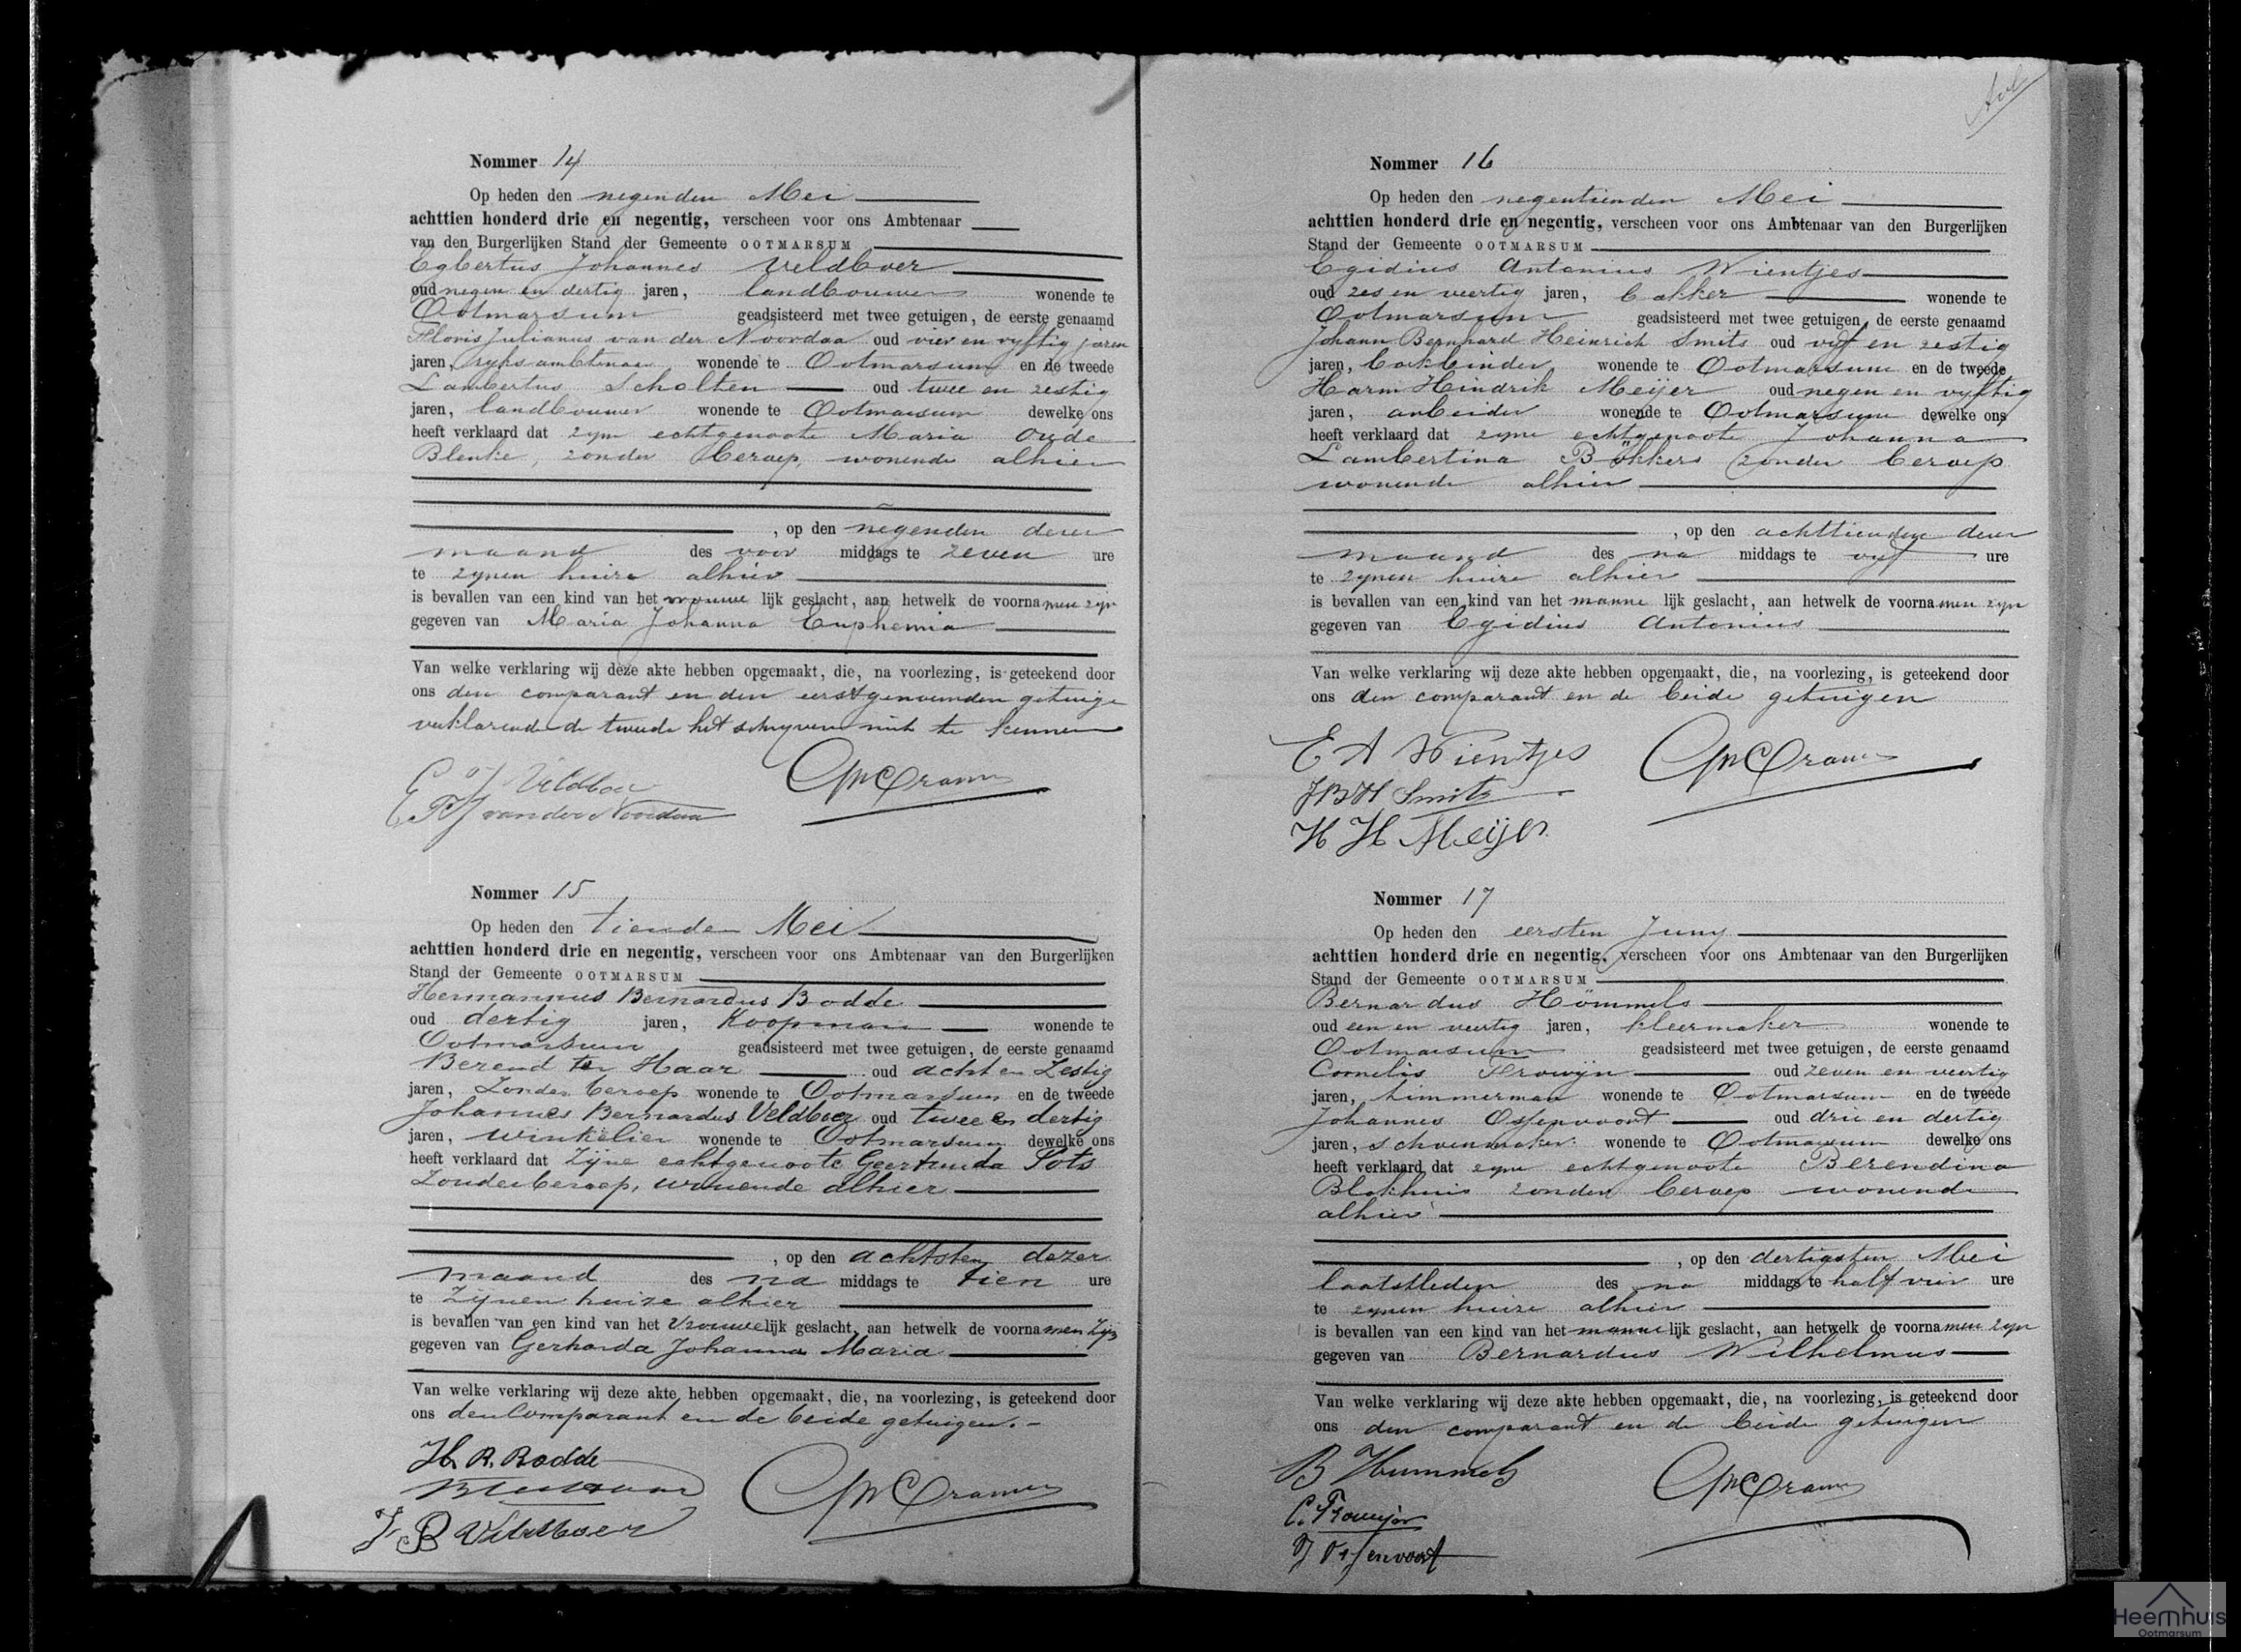 Nommer 14
Op heden den negenden Mei
achttien honderd drie en negentig, verscheen voor ons Ambtenaar
van den Burgerlijken Stand der Gemeente OOTMARSUM
Egbertus Johannes Veldboer
oud negen en dertig jaren, landbouwer wonende te
Ootmarsum geadsisteerd met twee getuigen, de eerste genaamd
Floris Julianus van der Noordaa oud vier en vyftig jaren
jaren, ryksambtenaar wonende te Ootmarsum en de tweede
Lambertus Scholten oud twee en zestig
jaren, landbouwer wonende te Ootmarsum dewelke ons
heeft verklaard dat zyne echtgenoote Maria Oude
Blenke, zonder beroep, wonende alhier
, op den negenden dezer
maand des voor middags te zeven ure
te zynen huize alhier
is bevallen van een kind van het vrouwe lijk geslacht, aan hetwelk de voornamen zyn
gegeven van Maria Johanna Euphemia
Van welke verklaring wij deze akte hebben opgemaakt, die, na voorlezing, is geteekend door
ons den comparant en den eerstgenoemden getuige
verklarende de tweede het schryven niet te kennen
E J Veldboer
F J van der Noordaa
Cramer
Nommer 15
Op heden den tienden Mei
achttien honderd drie en negentig, verscheen voor ons Ambtenaar van den Burgerlijken
Stand der Gemeente OOTMARSUM
Hermannus Bernardus Bodde
oud dertig jaren, Koopman wonende te
Ootmarsum geadsisteerd met twee getuigen, de eerste genaamd
Berend ter Haar oud acht en Zestig
jaren, Zonder beroep wonende te Ootmarsum en de tweede
Johannes Bernardus Veldboer oud twee en dertig
jaren, winkelier wonende te Ootmarsum dewelke ons
heeft verklaard dat Zijne echtgenoote Geertruida Pots
Zonder beroep, wonende alhier
, op den achtsten dezer
maand des na middags te tien ure
te Zijnen huize alhier
is bevallen van een kind van het Vrouwelijk geslacht, aan hetwelk de voornamen Zijn
gegeven van Gerharda Johanna Maria
Van welke verklaring wij deze akte hebben opgemaakt, die, na voorlezing, is geteekend door
ons den Comparant en de beide getuigen.
H. B. Bodde
J B Veldboer
Cramer
Nommer 16
Op heden den negentienden Mei
achttien honderd drie en negentig, verscheen voor ons Ambtenaar van den Burgerlijken
Stand der Gemeente OOTMARSUM
Egidius Antonius Wientjes
oud zes en veertig jaren, bakker wonende te
Ootmarsum geadsisteerd met twee getuigen, de eerste genaamd
Johann Bernhard Heinrich Smits oud vyf en zestig
jaren, boekbinder wonende te Ootmarsum en de tweede
Harm Hindrik Meijer oud negen en vyftig
jaren, arbeider wonende te Ootmarsum dewelke ons
heeft verklaard dat zyne echtgenoote Johanna
Lambertina Bökkers zonder beroep
wonende alhier
, op den achttienden dezer
maand des na middags te vyf ure
te zynen huize alhier
is bevallen van een kind van het manne lijk geslacht, aan hetwelk de voornamen zyn
gegeven van Egidius Antonius
Van welke verklaring wij deze akte hebben opgemaakt, die, na voorlezing, is geteekend door
ons den comparant en de beide getuigen
E A Wientjes
J B H Smits
H H Meijer
Cramer
Nommer 17
Op heden den eersten Juny
achttien honderd drie en negentig, verscheen voor ons Ambtenaar van den Burgerlijken
Stand der Gemeente OOTMARSUM
Bernardus Hömmels
oud een en veertig jaren, kleermaker wonende te
Ootmarsum geadsisteerd met twee getuigen, de eerste genaamd
Cornelis Frowijn oud zeven en veertig
jaren, timmerman wonende te Ootmarsum en de tweede
Johannes Ossenvoort oud drie en dertig
jaren, schoenmaker wonende te Ootmarsum dewelke ons
heeft verklaard dat zyne echtgenoote Berendina
Blokhuis zonder beroep wonende
alhier
, op den dertigsten Mei
laatstleden des na middags te half vier ure
te zynen huize alhier
is bevallen van een kind van het manne lijk geslacht, aan hetwelk de voornamen zyn
gegeven van Bernardus Wilhelmus
Van welke verklaring wij deze akte hebben opgemaakt, die, na voorlezing, is geteekend door
ons den comparant en de beide getuigen
B Hummels
C. Frowijn
J Ossenvoort
Cramer
Heemhuis
Ootmarsum